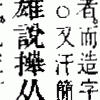 者而造字
○又汗簡
雄說㩲从